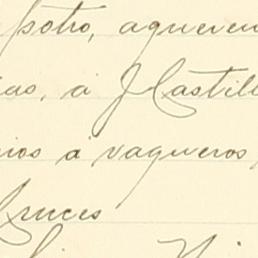 potro, aqueren
as, á J Castill
ios a vaqueros,
Cruces